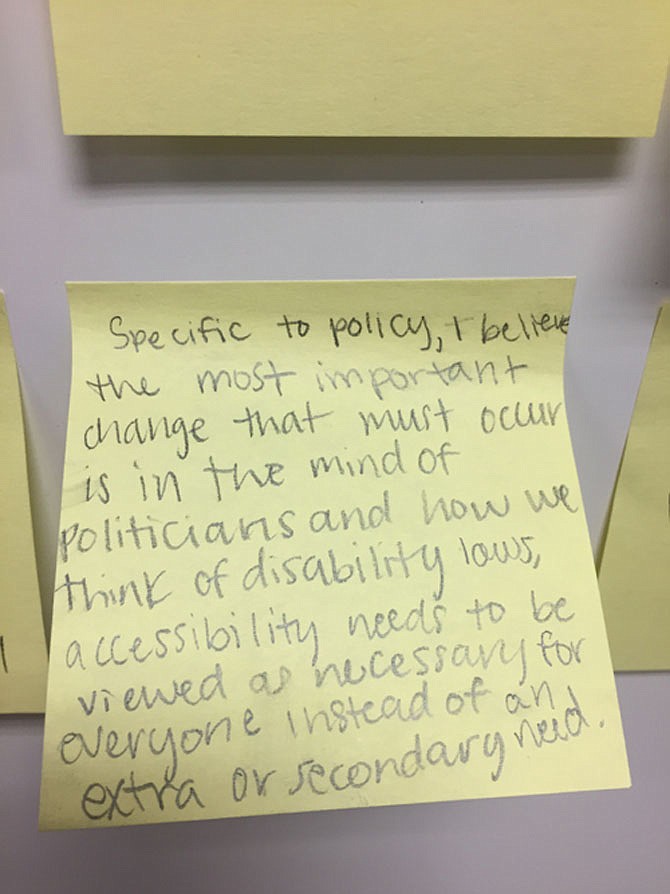 Specific to policy, I believe
the most important
change that must occur
is in the mind of
politicians and how we
think of disability laws,
accessibility needs to be
viewed as necessary for
everyone instead of an
extra or secondary need.